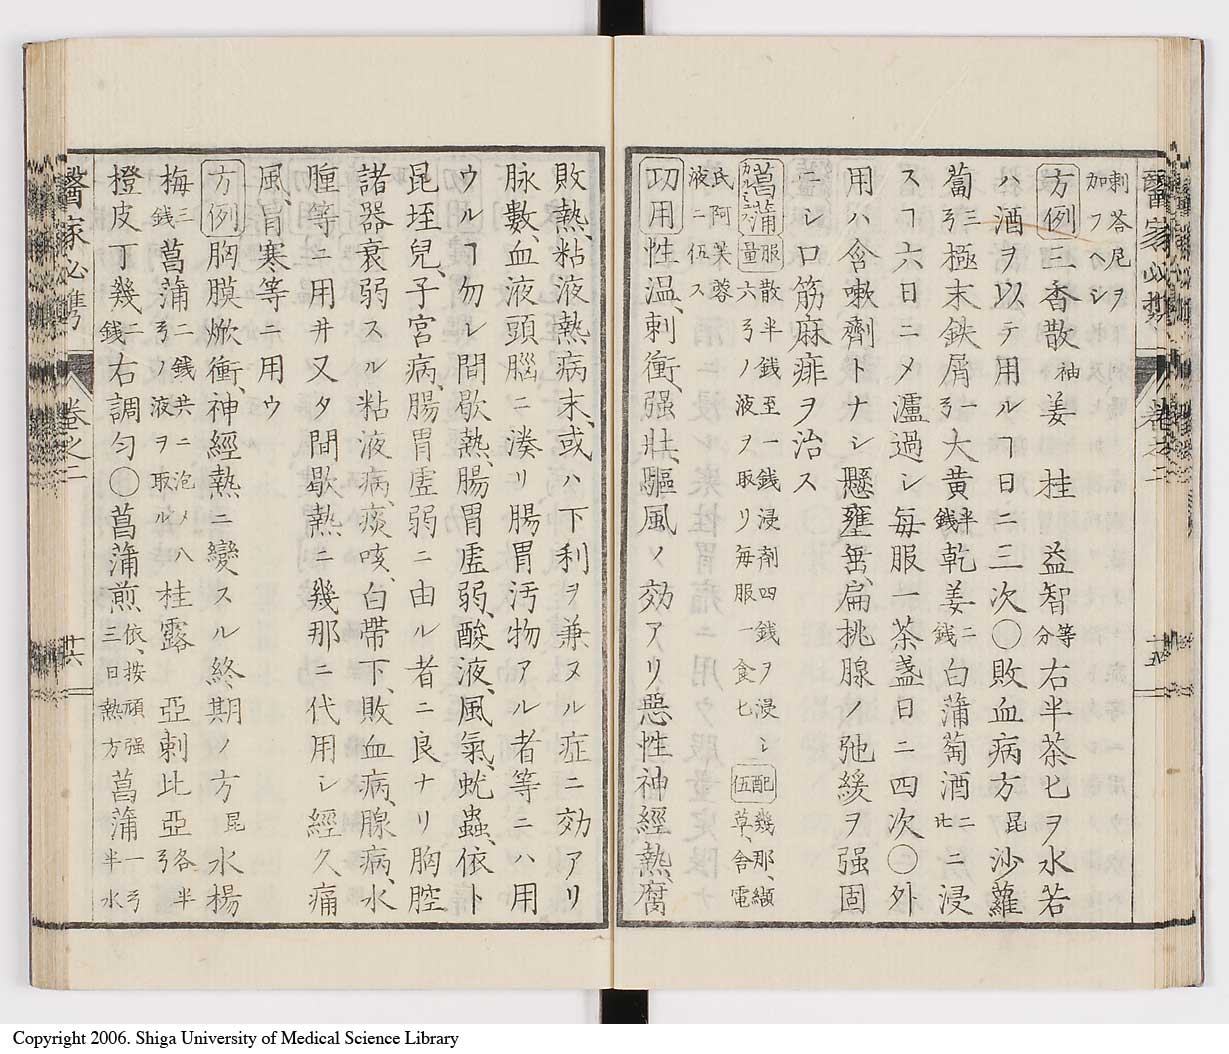 刺荅尾ヲ
加フヘシ
方例 三香散 袖 姜 桂 益智 等分 右半茶匕ヲ水若
ハ酒ヲ以テ用ルコ日ニ三次〇敗血病方 昆 沙蘿
蔔 三弓 極末鉄屑 一弓 大黄 半銭 乾姜 二銭 白蒲萄酒 二
ニ浸
スコ六日ニメ濾過シ毎服一茶盞日ニ四次〇外
用ハ含嗽劑トナシ懸壅垂、扁挑腺ノ弛緩ヲ强固
ニシ口筋麻痱ヲ治ス
菖蒲
カルミュス
服量 散半銭至一銭浸剤四銭ヲ浸シ
六弓ノ液ヲ取リ毎服一食匕
配伍 幾那、纈
草、舎電
氏阿芙蓉
液ニ伍ス
功用 性温、刺衝、强壯、驅風ノ効アリ、惡性神經熱、腐
敗熱、粘液熱病末、或ハ下利ヲ兼ヌル症ニ効アリ
脉數、血液頭腦ニ湊リ腸胃汚物アル者等ニハ用
ウルコ勿レ間歇熱、腸胃虚弱、酸液、風氣、蚘蟲、依卜
昆垤兒、子宮病、腸胃虚弱ニ由ル者ニ良ナリ胸腔
諸器衰弱スル粘液病、痰咳、白帶下、敗血病、腺病、水
腫等ニ用井又タ間歇熱ニ幾那ニ代用シ經久、痛
風、冒寒等ニ用ウ
方例 胸膜焮衝、神經熱ニ變スル終期ノ方 昆 水楊
梅 三銭 菖蒲 二銭共ニ泡メ八弓ノ液ヲ取ル 桂露 亞刺比亞 各半弓
橙皮丁幾 二銭 右調匀〇菖蒲煎 依、按 頑强三日熱方 菖蒲 一弓半 水
醫家必携
卷之二
十五
醫家必携
卷之二
十六
Copyright 2006. Shiga University of Medical Science Library